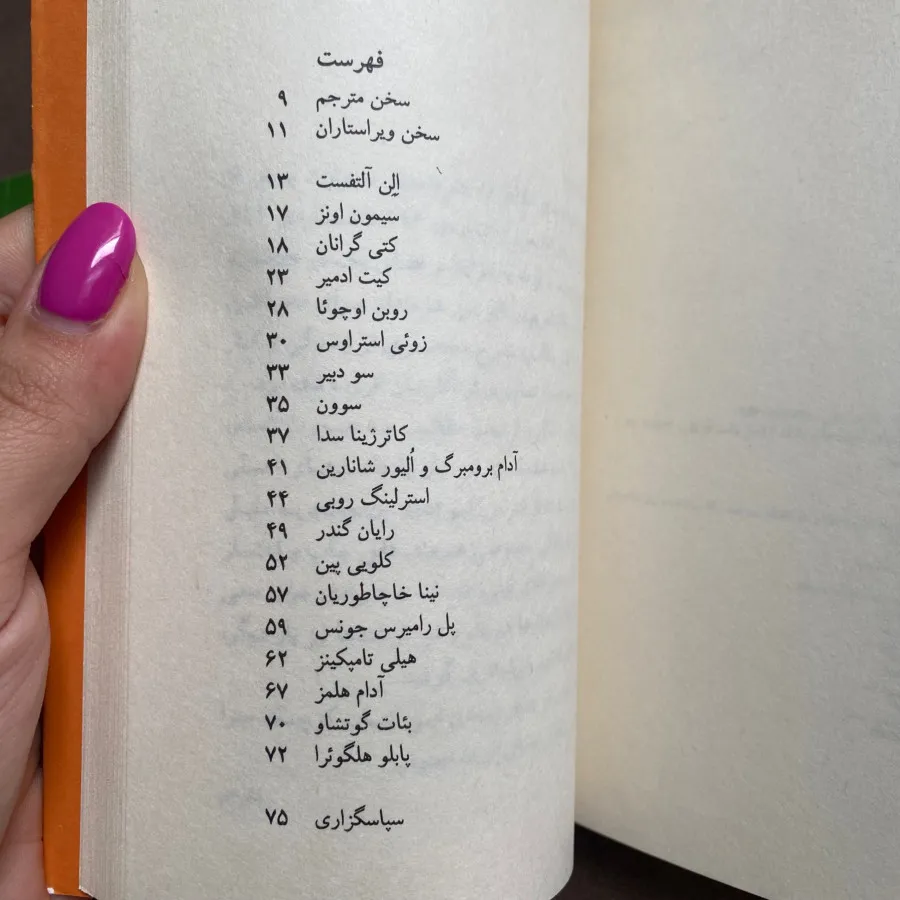 فهرست
سخن مترجم ۹
سخن ویراستاران ۱۱
اِلِن آلتفست ۱۳
سیمون اونز ۱۷
کتی گرانان ۱۸
کیت ادمیر ۲۳
روبن اوچوئا ۲۸
زوئی استراوس ۳۰
سو دبیر ۳۳
سوون ۳۵
کاترژینا سدا ۳۷
آدام برومبرگ و اُلیور شانارین ۴۱
استرلینگ روبی ۴۴
رایان گندر ۴۹
کلویی پین ۵۲
نینا خاچاطوریان ۵۷
پل رامیرس جونس ۵۹
هیلی تامپکینز ۶۲
آدام هلمز ۶۷
بئات گوتشاو ۷۰
پابلو هلگوئرا ۷۲
سپاسگزاری ۷۵